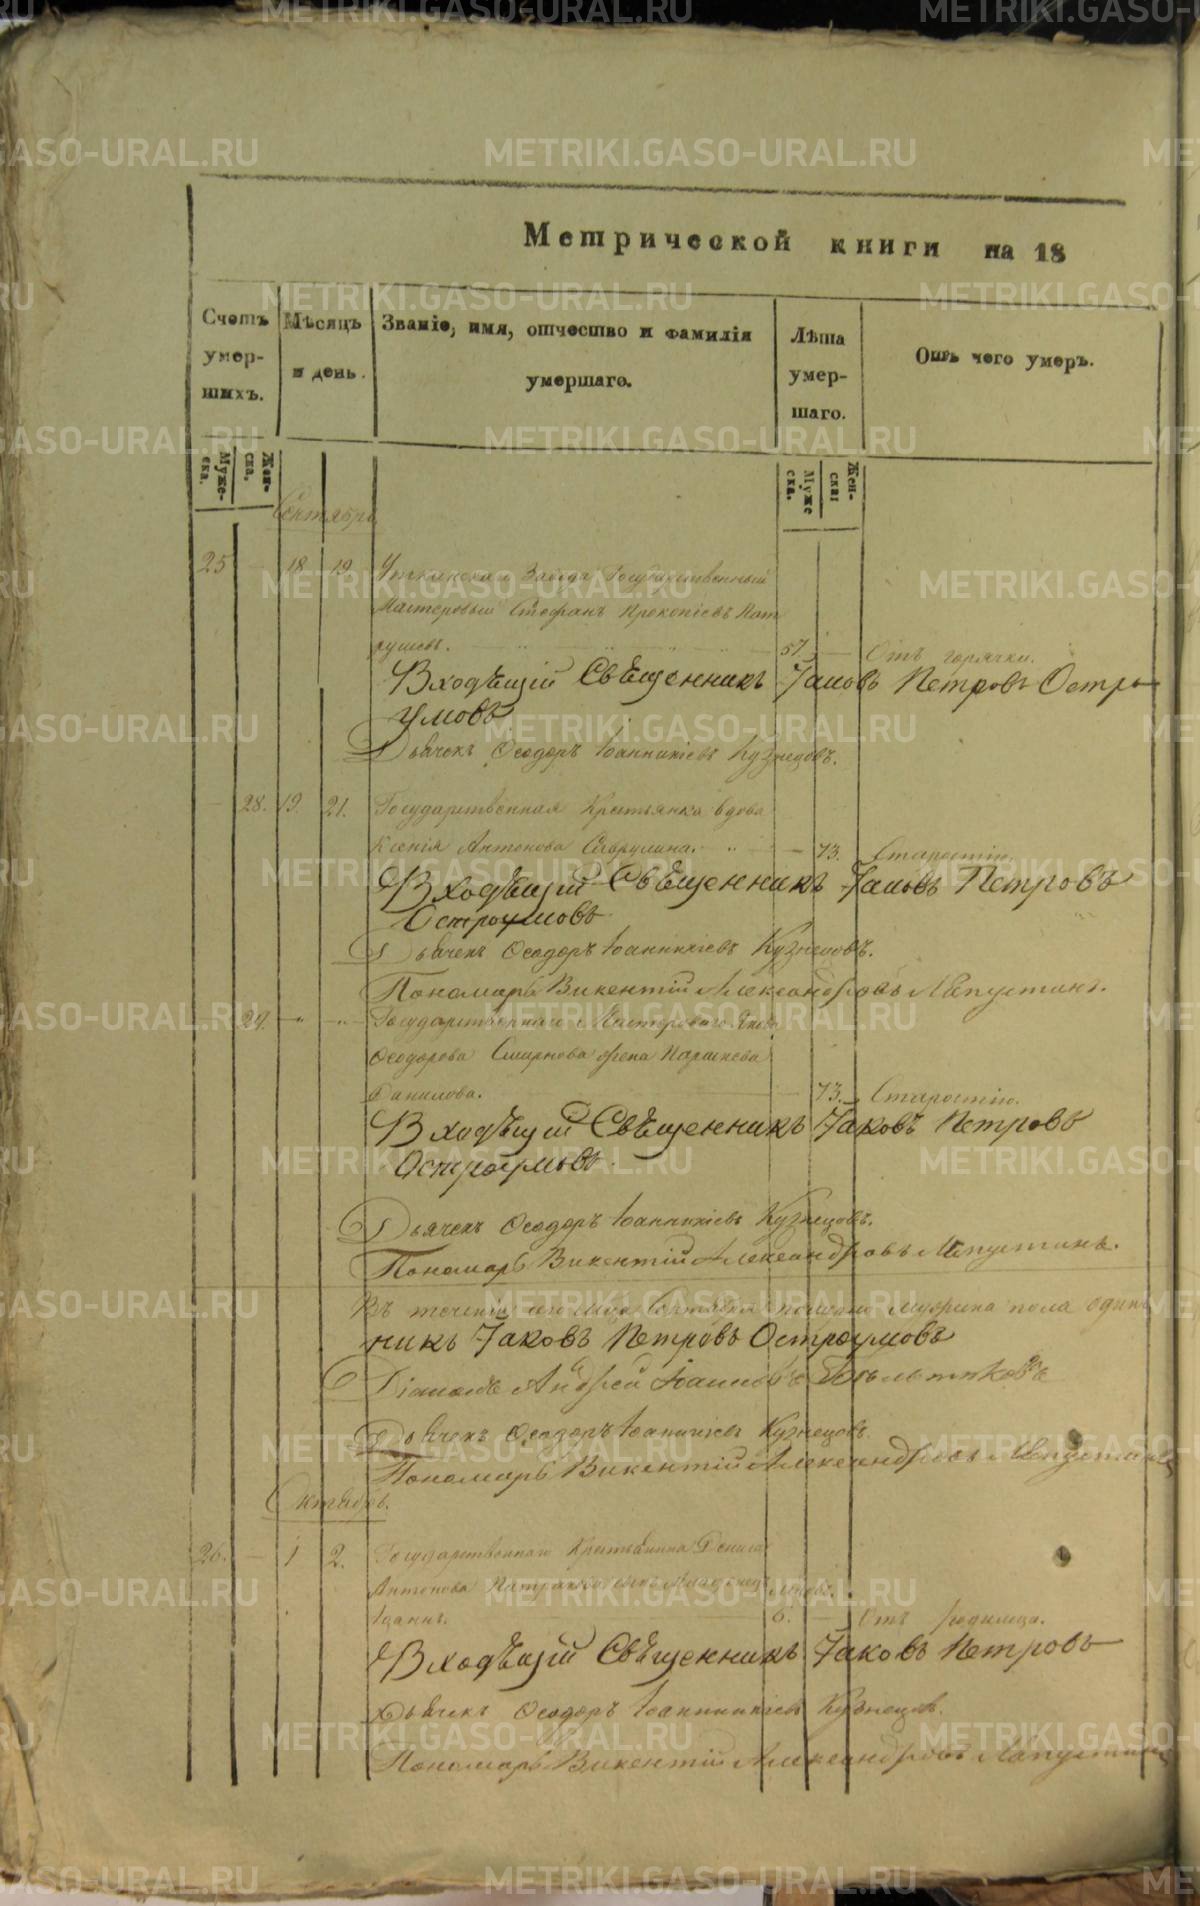 Метрической книги на 18
Счетъ умер- шихъ.
Мѣсяцъ и день.
Званіе, имя, отчество и фамилія умершаго.
Лѣта умер- шаго.
Отъ чего умеръ.
Муже- ска.
Жен- ска.
Муже ска.
Жен- ска
Сентябрь
25 — 18 19 Уткинскаго Завода Государственный
Мастеровый Стефанъ Прокопіевъ Пат
рушевъ. 57. — Отъ горячки.
Входѣщій Свѣщенникъ Іаковъ Петровъ Остро
умовъ
Дьячекъ Ѳеодоръ Іоанникіевъ Кузнецовъ.
— 28. 19. 21. Государственная Крестьянка вдова
Ксенія Антонова — 73. Старостію.
Входѣщій Свѣщенникъ Іаковъ Петровъ
Остроумовъ
Дьячекъ Ѳеодоръ Іоанникіевъ Кузнецовъ.
Пономарь Викентій Александровъ Лапустинъ.
— 29. — " — " — Государственнаго Мастероваго Якова
Ѳеодорова Смирнова жена Параскева
Данилова. — 73. Старостію.
Входѣщій Свѣщенникъ Іаковъ Петровъ
Остроумовъ.
Дьячекъ Ѳеодоръ Іоанникіевъ Кузнецовъ.
Пономарь Викентій Александровъ Лапустинъ.
Въ теченіи сего Мца Сентября мужеска пола одинъ
никъ Іаковъ Петровъ Остроумовъ
Діаконъ Андрей Іанновъ
Дьячекъ Ѳеодоръ Іоанникіевъ Кузнецовъ.
Пономарь Викентій Александровъ Лапустинъ
Октябрь.
26. — 1 2. Государственнаго Крестьянина Дениса
Антонова младенецъ
Іоаннъ. 6. — Отъ родимца.
Входѣщій Свѣщенникъ Іаковъ Петровъ
Дьячекъ Ѳеодоръ Іоанникіевъ Кузнецов.
Пономарь Викентій Александровъ Лапустинъ
METRIKI.GASO-URAL.RU